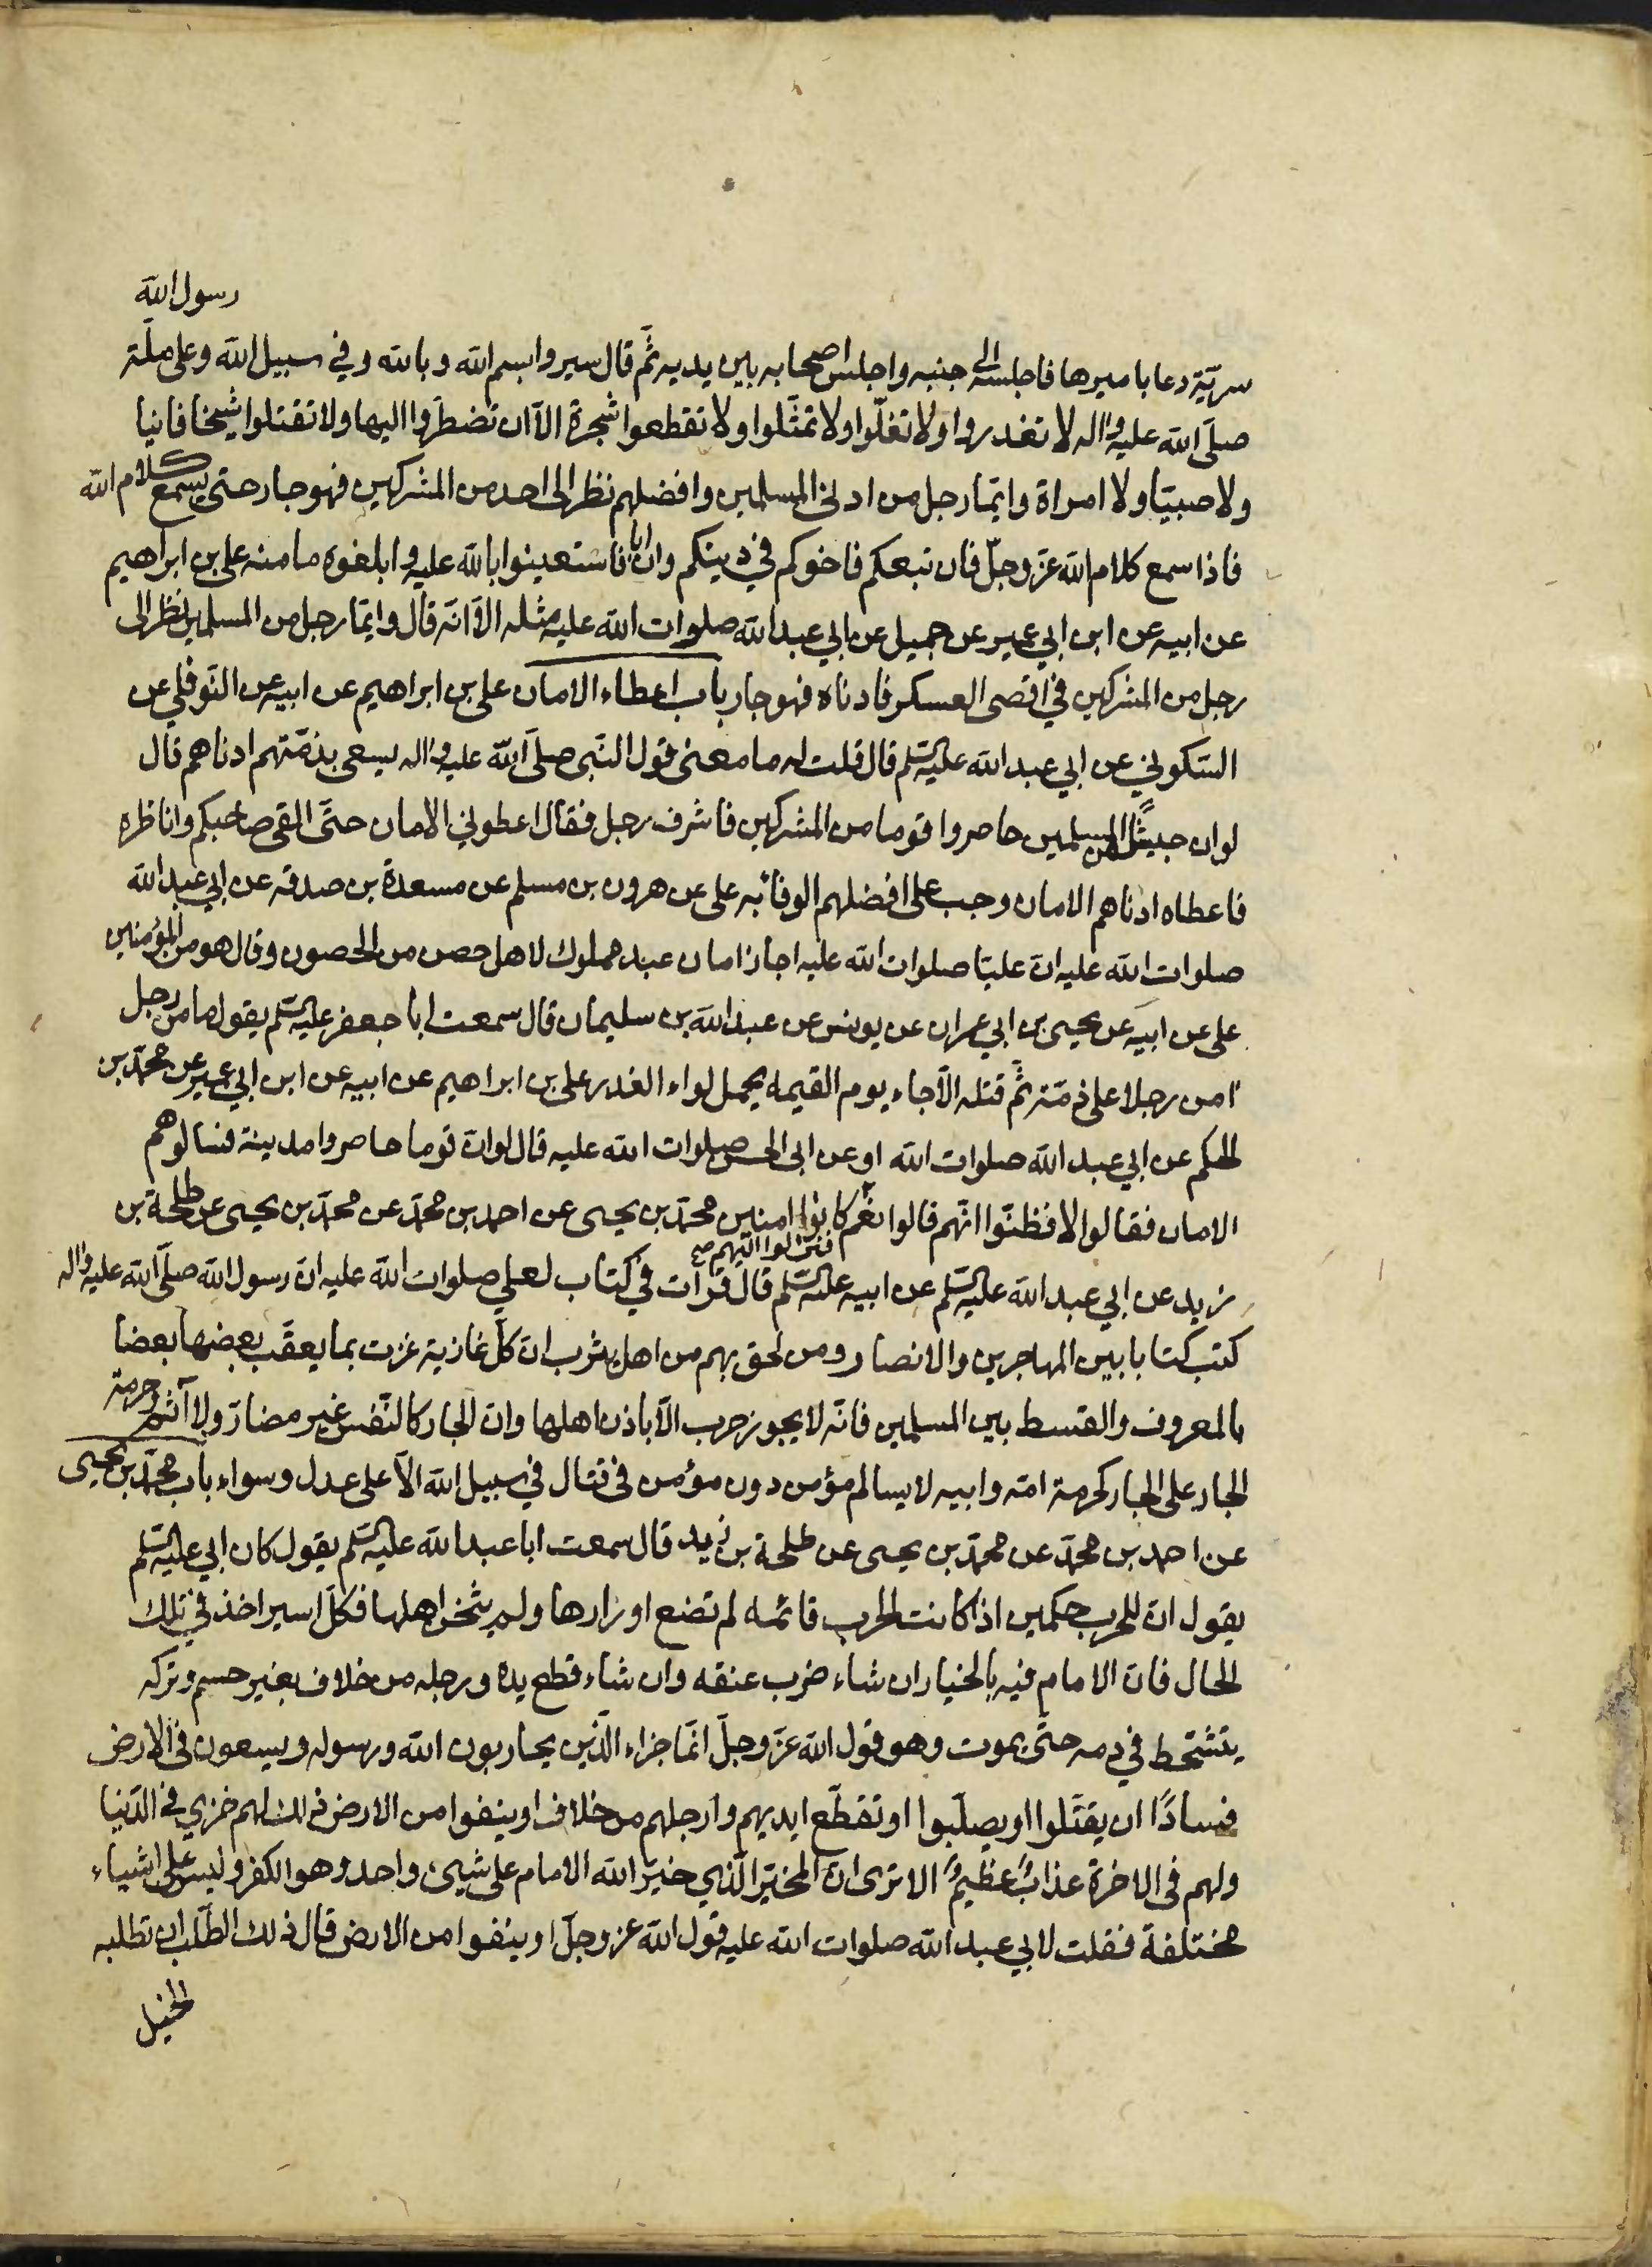 رسول الله
سريّة دعا باميرها فاجلسه الى جنبه واجلس اصحابه بين يديه ثمّ قال سيروا بسم الله وبالله وفي سبيل الله وعلى ملّة
صلّى الله عليه واله لا تغدروا ولا تغلّوا ولا تمثّلوا ولا تقطعوا شجرة الّا ان تضطرّوا اليها ولا تقتلوا شيخا فانيا
ولا صبيّا ولا امراة وايّما رجل من ادنى المسلمين وافضلهم نظر الى احد من المشركين فهو جار حتى يسمع كلام الله
فاذا سمع كلام الله عزّ وجلّ فان تبعكم فاخوكم في دينكم وان ابا فاستعينوا بالله عليه وابلغوه مامنه على بن ابراهيم
عن ابيه عن ابن ابي عمير عن جميل عن ابي عبد الله صلوات الله عليه مثله الّا انّه قال وايّما رجل من المسلمين نظر الى
رجل من المشركين في اقصى العسكر فادناه فهو جار باب اعطاء الامان على بن ابراهيم عن ابيه عن النّوفلي عن
السّكوني عن ابي عبد الله عليه السّلم قال قلت له ما معنى قول النّبى صلّى الله عليه واله يسعى بذمّتهم ادناهم قال
لو ان جيشًا من المسلمين حاصروا قوما من المشركين فاشرف رجل فقال اعطوني الامان حتّى القى صاحبكم واناظره
فاعطاه ادناهم الامان وجب على افضلهم الوفاء به على عن هرون بن مسلم عن مسعدة بن صدقه عن ابي عبد الله
صلوات الله عليه انّ عليّا صلوات الله عليه اجاز امان عبد مملوك لاهل حصن من الحصون وقال هو من المؤمنين
على عن ابيه عن يحيى بن ابي عمران عن يونس عن عبد الله بن سليمان قال سمعت ابا جعفر عليه السّلم يقول ما من رجل
امن رجلا على ذمّته ثمّ قتله الّا جاء يوم القيمه يحمل لواء الغدر على بن ابراهيم عن ابيه عن ابن ابي عمير عن محمّد بن
الحكم عن ابي عبد الله صلوات الله او عن ابى الحسن صلوات الله عليه قال لو انّ قوما حاصروا مدينة فسالوهم
الامان فقالوا لا فظنّوا انّهم قالوا نعم كانوا امنين محمّد بن يحيى عن احمد بن محمّد عن محمّد بن يحيى عن طلحة بن
فنزلوا اليهم صح
زيد عن ابي عبد الله عليه السّلم عن ابيه عليه السّلم قال قرات في كتاب لعلي صلوات الله عليه انّ رسول الله صلّى الله عليه واله
كتب كتابا بين المهاجرين والانصار ومن لحق بهم من اهل يثرب انّ كلّ غازية غزت بما يعقّب بعضها بعضا
بالمعروف والقسط بين المسلمين فانّه لا يجوز حرب الّا باذن اهلها وانّ الجار كالنّفس غير مضارّ ولا آثم وحرمة
الجار على الجار كحرمة امّه وابيه لا يسالم مؤمن دون مؤمن فى قتال في سبيل الله الّا على عدل وسواء باب محمّد بن يحيى
عن احمد بن محمّد عن محمّد بن يحيى عن طلحة بن زيد قال سمعت ابا عبد الله عليه السّلم يقول كان ابي عليه السّلم
يقول انّ للحرب حكمين اذا كانت الحرب قائمه لم تضع اوزارها ولم يثخن اهلها فكلّ اسير اخذ في تلك
الحال فانّ الامام فيه بالخيار ان شاء ضرب عنقه وان شاء قطع يده ورجله من خلاف بغير حسم وتركه
يتشحّط في دمه حتّى يموت وهو قول الله عزّ وجلّ انّما جزاء الّذين يحاربون الله ورسوله ويسعون فى الارض
فسادًا ان يقتّلوا او يصلّبوا او تقطّع ايديهم وارجلهم من خلاف او ينفوا من الارض ذلك لهم خزي في الدّنيا
ولهم فى الاخرة عذابٌ عظيمٌ الا ترى انّ المخيّر الّذي خيّر الله الامام على شيئ واحد وهو الكفر وليس على اشياء
مختلفة فقلت لابي عبد الله صلوات الله عليه قول الله عز وجلّ او ينفوا من الارض قال ذلك الطّلب ان تطلبه
الخيل